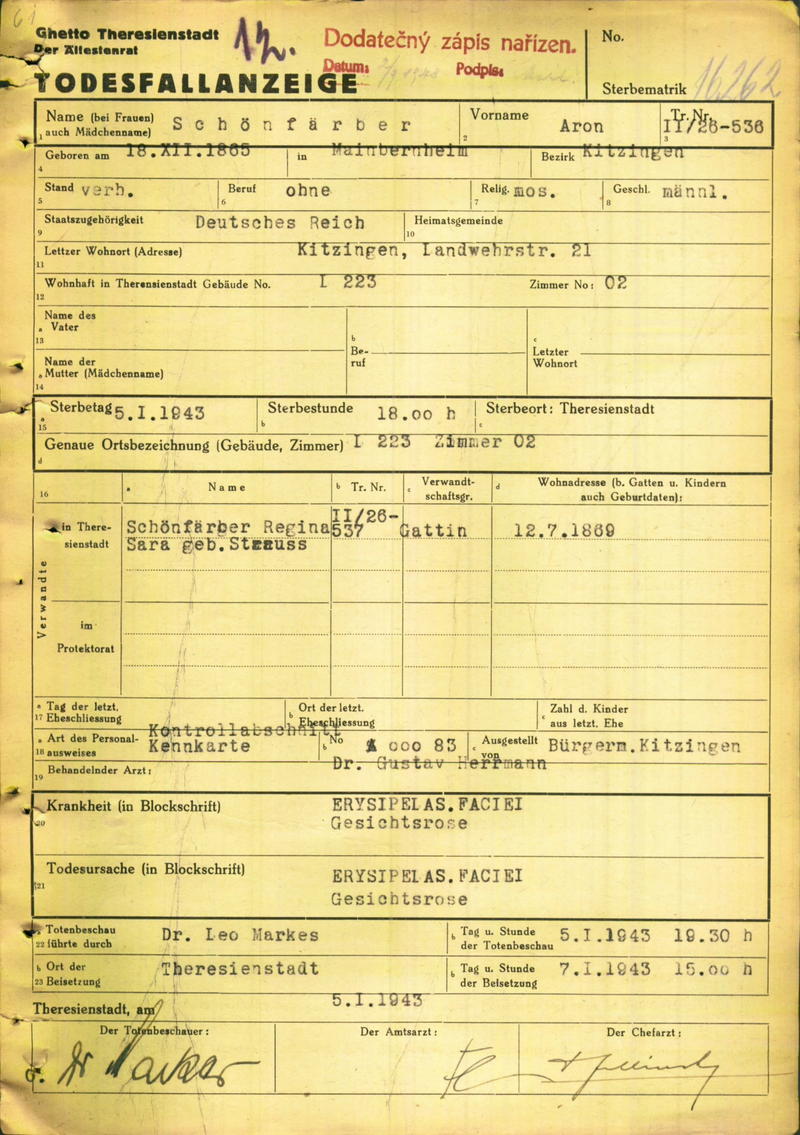 Ghetto Theresienstadt
Der Ältestenrat
12.
Dodatečný zápis nařízen.
Datum: Podpis:
No.
TODESFALLANZEIGE
Sterbematrik 16262
Name (bei Frauen) auch Mädchenname) Schönfärber
1
Vorname Aron
2
Tr. Nr. II/26-536
3
Geboren am 18.XII.1865 in Mainbernheim Bezirk Kitzingen
4
Stand verh. Beruf ohne Relig. mos. Geschl. männl.
5 6 7 8
Staatszugehörigkeit Deutsches Reich Heimatsgemeinde
9 10
Lettzer Wohnort (Adresse) Kitzingen, Landwehrstr. 21
11
Wohnhaft in Therensienstadt Gebäude No. I 223 Zimmer No: 02
12
Name des
a Vater
13
b Beruf
c Letzter Wohnort
Name der
a Mutter (Mädchenname)
14
Sterbetag 5.I.1943 Sterbestunde 18.00 h Sterbeort: Theresienstadt
a 15 b c
Genaue Ortsbezeichnung (Gebäude, Zimmer) I 223 Zimmer 02
d
16 a Name b Tr. Nr. c Verwandtschaftsgr. d Wohnadresse (b. Gatten u. Kindern auch Geburtdaten):
Verwandte
in Theresienstadt
Schönfärber Regina II/26- Gattin 12.7.1869
Sara geb. Strauss 537
im
Protektorat
a Tag der letzt.
17 Eheschliessung
b Ort der letzt. Eheschliessung
c Zahl d. Kinder aus letzt. Ehe
Kontrollabschnitt
a Art des Personal-
18 ausweises Kennkarte b No A 000 83 c Ausgestellt von Bürgerm. Kitzingen
Behandelnder Arzt: Dr. Gustav Herrmann
19
Krankheit (in Blockschrift) ERYSIPELAS.FACIEI
20 Gesichtsrose
Todesursache (in Blockschrift) ERYSIPELAS.FACIEI
21 Gesichtsrose
a Totenbeschau
22 führte durch Dr. Leo Markes b Tag u. Stunde der Totenbeschau 5.I.1943 19.30 h
b Ort der
23 Beisetzung Theresienstadt b Tag u. Stunde der Beisetzung 7.I.1943 15.00 h
Theresienstadt, am 5.I.1943
Der Totenbeschauer: Der Amtsarzt: Der Chefarzt:
Dr. Markes